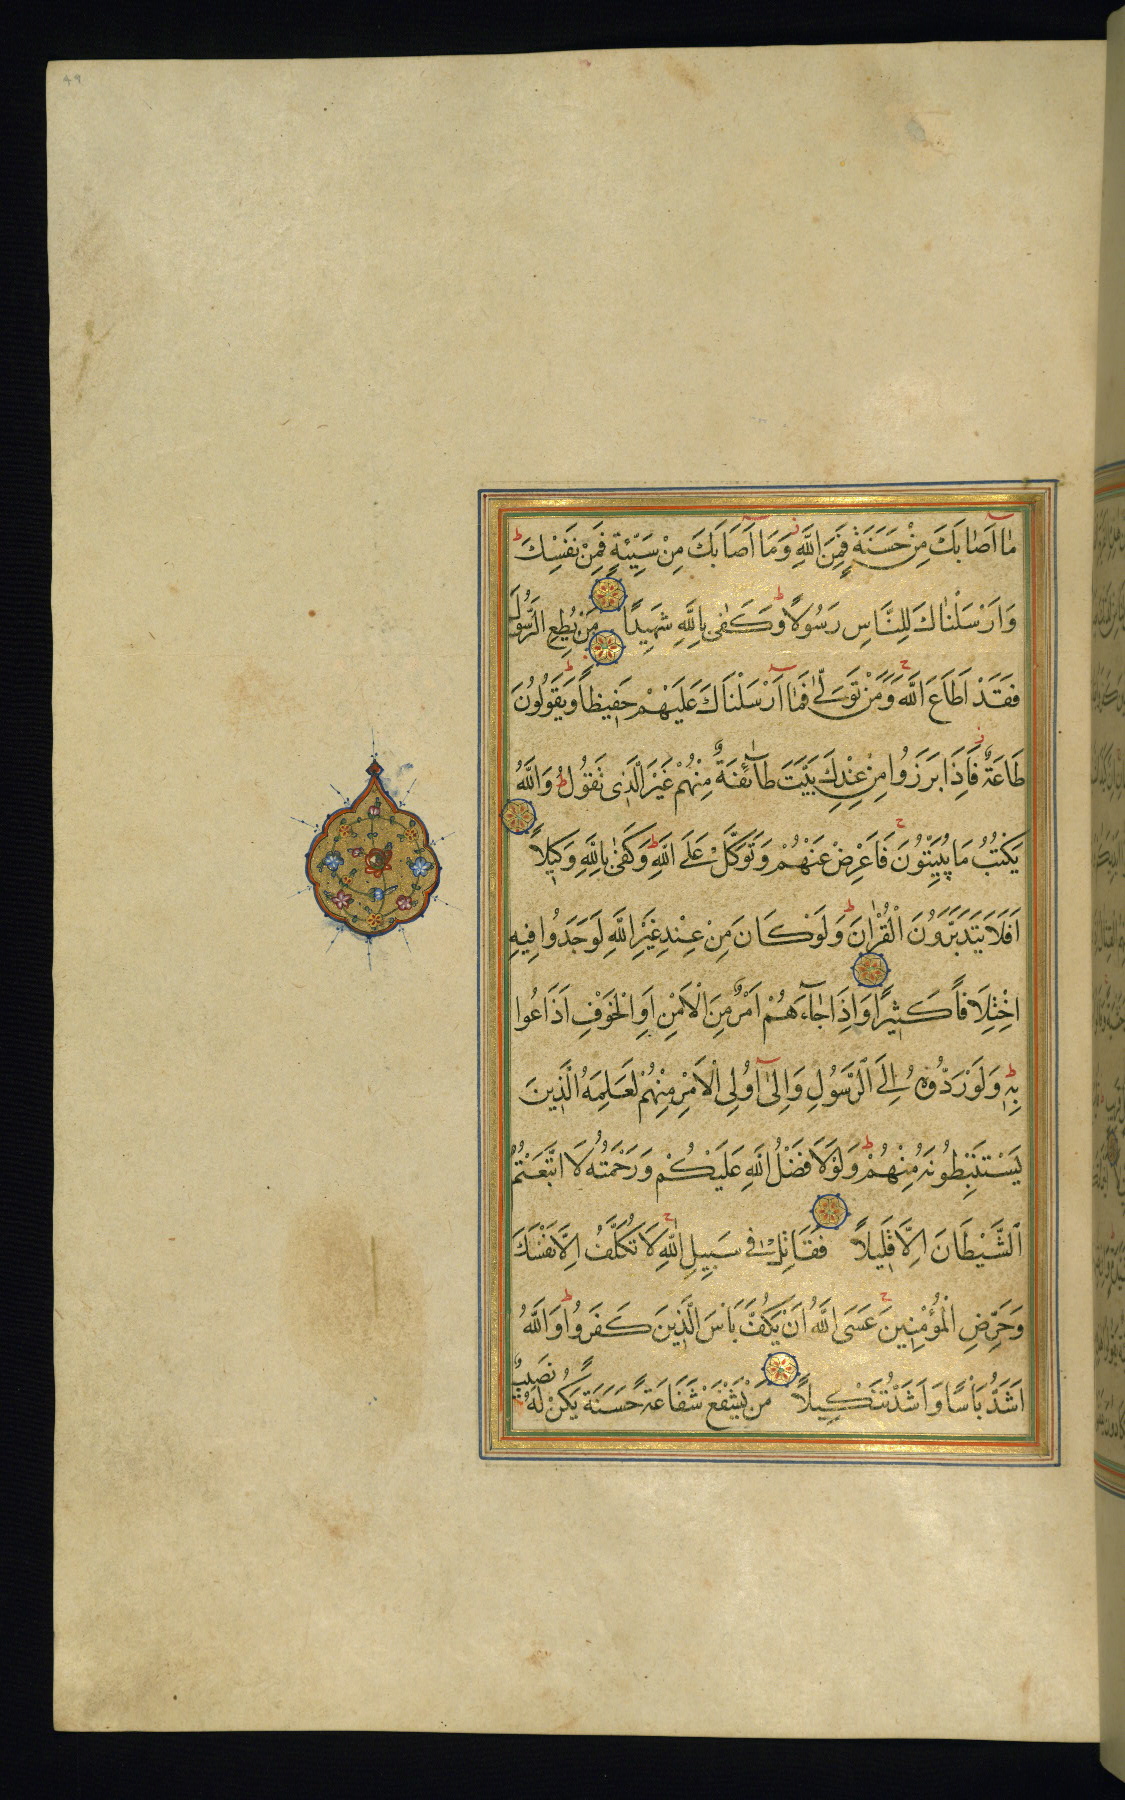 49
مٰا اَصٰابَكَ مِنْ حَسَنَةٍ فَمِنَ اللّٰهِ وَمَا اَصَابَكَ مِنْ سَيِّئَةٍ فَمِنْ نَفْسِكَ ط
وَاَرْسَلْنٰاكَ لِلنَّاسِ رَسُولًا ط وَكَفٰى بِاللّٰهِ شَهِيدًا مَنْ يُطِعِ الرَّسُولَ
فَقَدْ اَطَاعَ اللّٰهَ ج وَمَنْ تَوَلّٰى فَمٰا اَرْسَلْنَاكَ عَلَيْهِمْ حَفِيظًا ط وَيَقُولُونَ
طَاعَةٌ ز فَاِذَا بَرَزُوا مِنْ عِنْدِكَ بَيَّتَ طَائِفَةٌ مِنْهُمْ غَيْرَ الَّذِى تَقُولُ ط وَاللّٰهُ
يَكْتُبُ مَا يُبَيِّتُونَ ج فَاَعْرِضْ عَنْهُمْ وَتَوَكَّلْ عَلَى اللّٰهِ ط وَكَفٰى بِاللّٰهِ وَكِيلًا
اَفَلَا يَتَدَبَّرُونَ الْقُرْاٰنَ ط وَلَوْ كَانَ مِنْ عِنْدِ غَيْرِ اللّٰهِ لَوَجَدُوا فِيهِ
اخْتِلَافًا كَثِيرًا وَاِذَا جٰاءَهُمْ اَمْرٌ مِنَ الْاَمْنِ اَوِ الْخَوْفِ اَذَاعُوا
بِهِ ط وَلَوْ رَدُّوهُ اِلَى الرَّسُولِ وَاِلٰى اُولِى الْاَمْرِ مِنْهُمْ لَعَلِمَهُ الَّذِينَ
يَسْتَنْبِطُونَهُ مِنْهُمْ ط وَلَوْلَا فَضْلُ اللّٰهِ عَلَيْكُمْ وَرَحْمَتُهُ لَاتَّبَعْتُمُ
الشَّيْطَانَ اِلَّا قَلِيلًا فَقَاتِلْ فِى سَبِيلِ اللّٰهِ ج لَا تُكَلَّفُ اِلَّا نَفْسَكَ
وَحَرِّضِ الْمُؤْمِنِينَ ج عَسَى اللّٰهُ اَنْ يَكُفَّ بَاْسَ الَّذِينَ كَفَرُوا ط وَاللّٰهُ
اَشَدُّ بَاْسًا وَاَشَدُّ تَنْكِيلًا مَنْ يَشْفَعْ شَفَاعَةً حَسَنَةً يَكُنْ لَهُ نَصِيبٌ